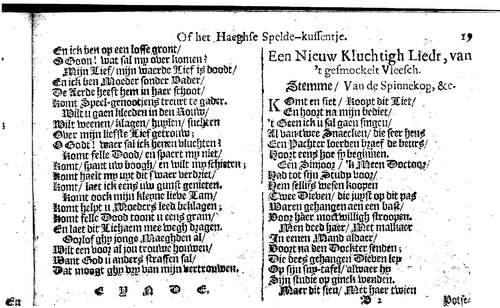 Of het Haeghse Spelde-kussentje. 19
En ick ben op een losse gront/
O Goon! wat sal my over komen?
Mijn Lief/ mijn waerde Lief is doodt/
En ick ben Moeder sonder Vader/
De Aerde heeft hem in haer schoot/
Komt Speel-genootjens treurt te gader.
Wilt u gaen kleeden in den Rouw/
Wilt weenen/ klagen/ huylen/ suchten
Over mijn liefste Lief getrouw;
O Godt! waer sal ick henen vluchten?
Komt felle Dood/ en spaert my niet/
Komt/ spant uw boogh/ en wilt my schieten;
Komt haelt my uyt dit swaer verdriet/
Komt/ laet ick eens uw gunst genieten.
Komt oock mijn kleyne lieve Lam/
Komt helpt u Moeders leed beklagen;
Komt felle Dood toont u eens gram/
En laet dit Lichaem mee wegh dragen.
Oorlof ghy jonge Maeghden al/
Wilt een voor al jou trouwe houwen/
Want God u anders straffen sal/
Dat moogt ghy vry van mijn vertrouwen.
EYNDE.
En
Een Nieuw Kluchtigh Liedt, van
't gesmockelt Vleesch.
Stemme, Van de Spinnekop, &c.
KOmt en siet/ Koopt dit Liet/
En hoort na mijn bediet/
't Geen ick u sal gaen singen/
Al van twee Snaecken/ die seer heus
Een Pachter loerden braef de beurs/
Hoort eens hoe sy beginnen.
Een Sinjoor/ 'k Meen Doctoor/
Had tot sijn Study voor/
Hem selfs wesen koopen
Twee Dieven/ die juyst op dit pas
Waren gehangen aen een bast/
Voor haer moetwilligh stroopen.
Men deed haer/ Met malkaer
In eenen Mand aldaer/
Voort na den Dockter senden;
Die dees gehangen Dieven lep
Op sijn snp-tafel/ alwaer hy
Sijn studie op sou wenden.
Maer dit sien/ Met haer twien
B 2 Potse-